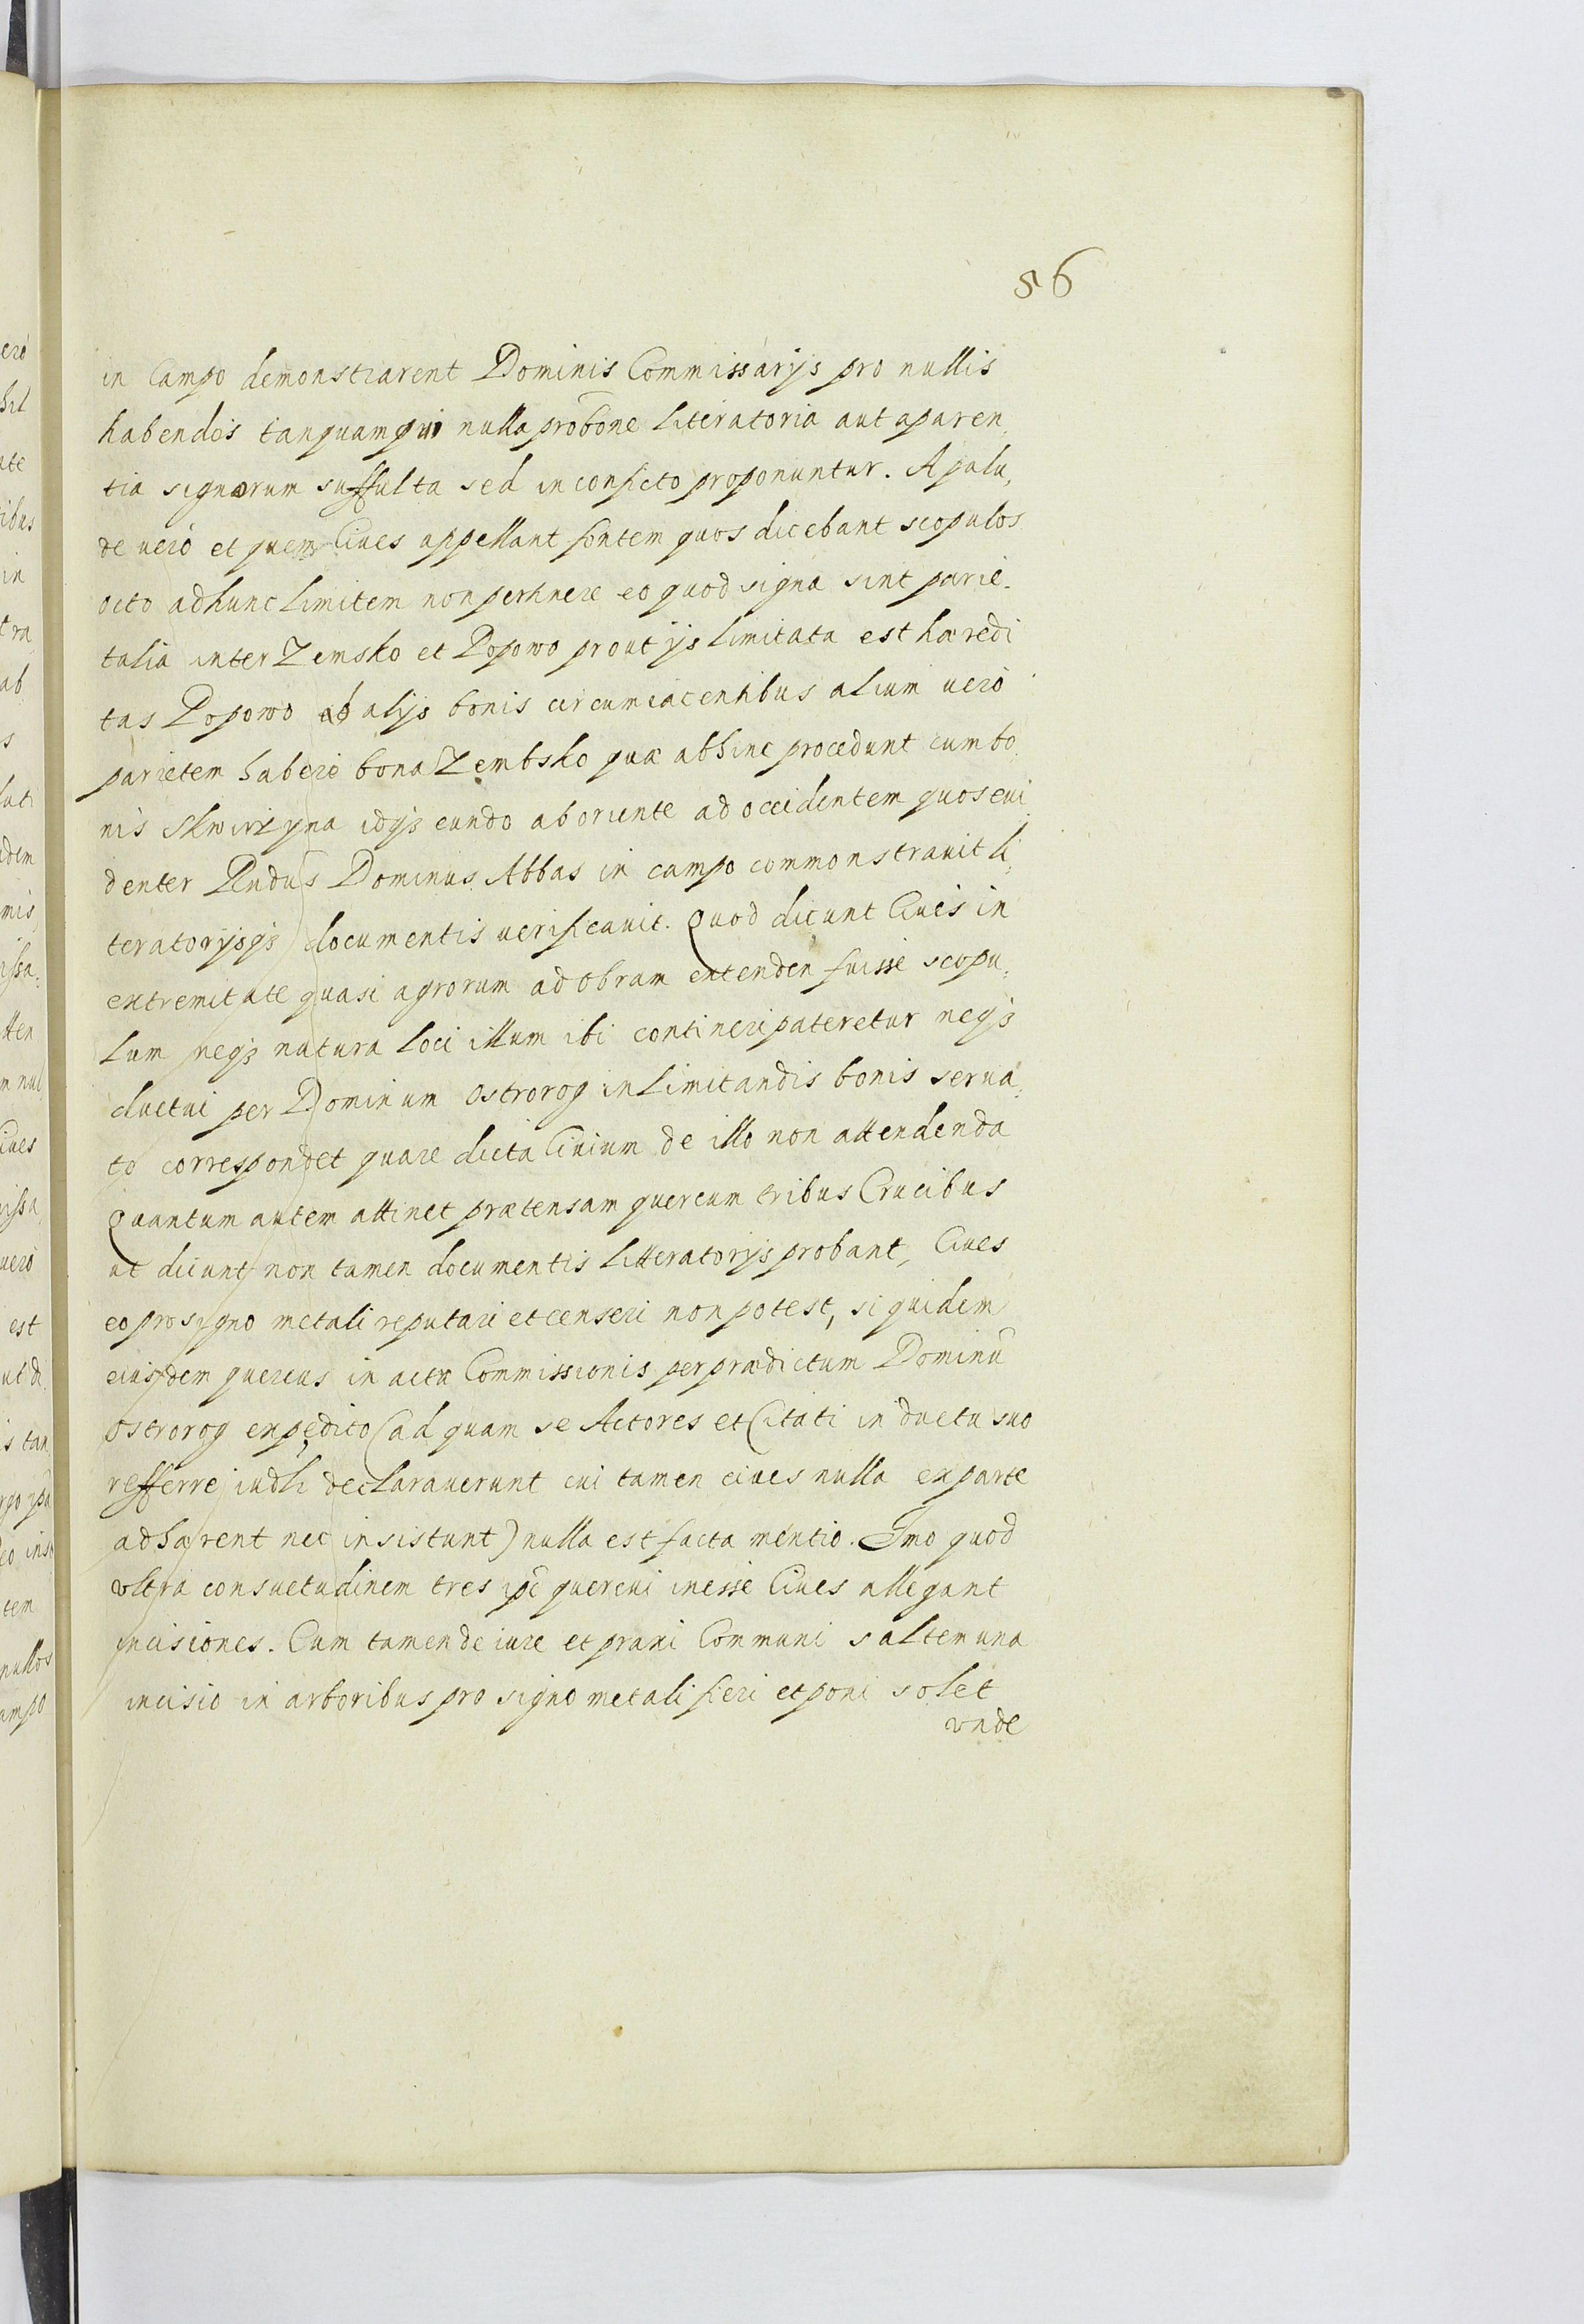 56
in Campo demonstrarent Dominis Commissarijs pro nullis
habendos tanquam qui nulla probone literatoria aut aparen,
tia signorum suffulta sed in conficto proponuntur. A palu,
de vero et quem Ciues appellant fontem quos dicebant scopulos
octo ad hunc limitem non pertinere eo quod signa sint parie-
talia inter Zemsko et Popowo prout ijs limitata est hæredi
tas Popowo ab alijs bonis circumiacentibus alium uero
parietem habere bona Zembsko quæ abhinc procedunt cum bo
nis Skwirzyna idqs eundo ab oriente ad occidentem quos eui
denter Rndus Dominus Abbas in campo commonstrauit li,
teratorijsqs documentis uerificauit. Quod dicunt Ciues in
extremitate quasi agrorum ad obram extenden fuisse scopu,
lum neqs natura loci illum ibi contineri pateretur neqs
ductui per Dominum Ostrorog in limitandis bonis serua,
to correspondet quare dicta Ciuium de illo non attendenda
Quantum autem attinet prætensam quercum tribus Crucibus
ut dicunt non tamen documentis litteratorijs probant, Ciues
eo pro signo metali reputari et censeri non potest, siquidem
eiusdem quercus in actu Commissionis per prædictum Dominū
Ostrorog expedito (ad quam se Actores et Citati in ductu suo
refferre iudli declarauerunt cui tamen ciues nulla ex parte
adhærent nec insistunt) nulla est facta mentio. Imo quod
vltra consuetudinem tres ipē quercui inesse Ciues allegant
incisiones. Cum tamen de iure et praxi Communi saltem una
incisio in arboribus pro signo metali fieri et poni solet
vnde